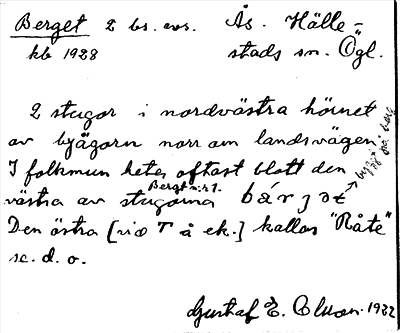 Berget 2 bs. avs. Ås. Hälle-
kb 1928 stads sn. Ögl.
2 stugor i nordvästra hörnet
av byägorn norr om landsvägen
byggj på berg
I folkmun hetes oftast blott den
Bergt n:r 1.
västra av stugorna bárʒət
Den östra [vid T å ek.] kallas "Råte"
sc. d. o.
Gustaf E. Olsson. 1932